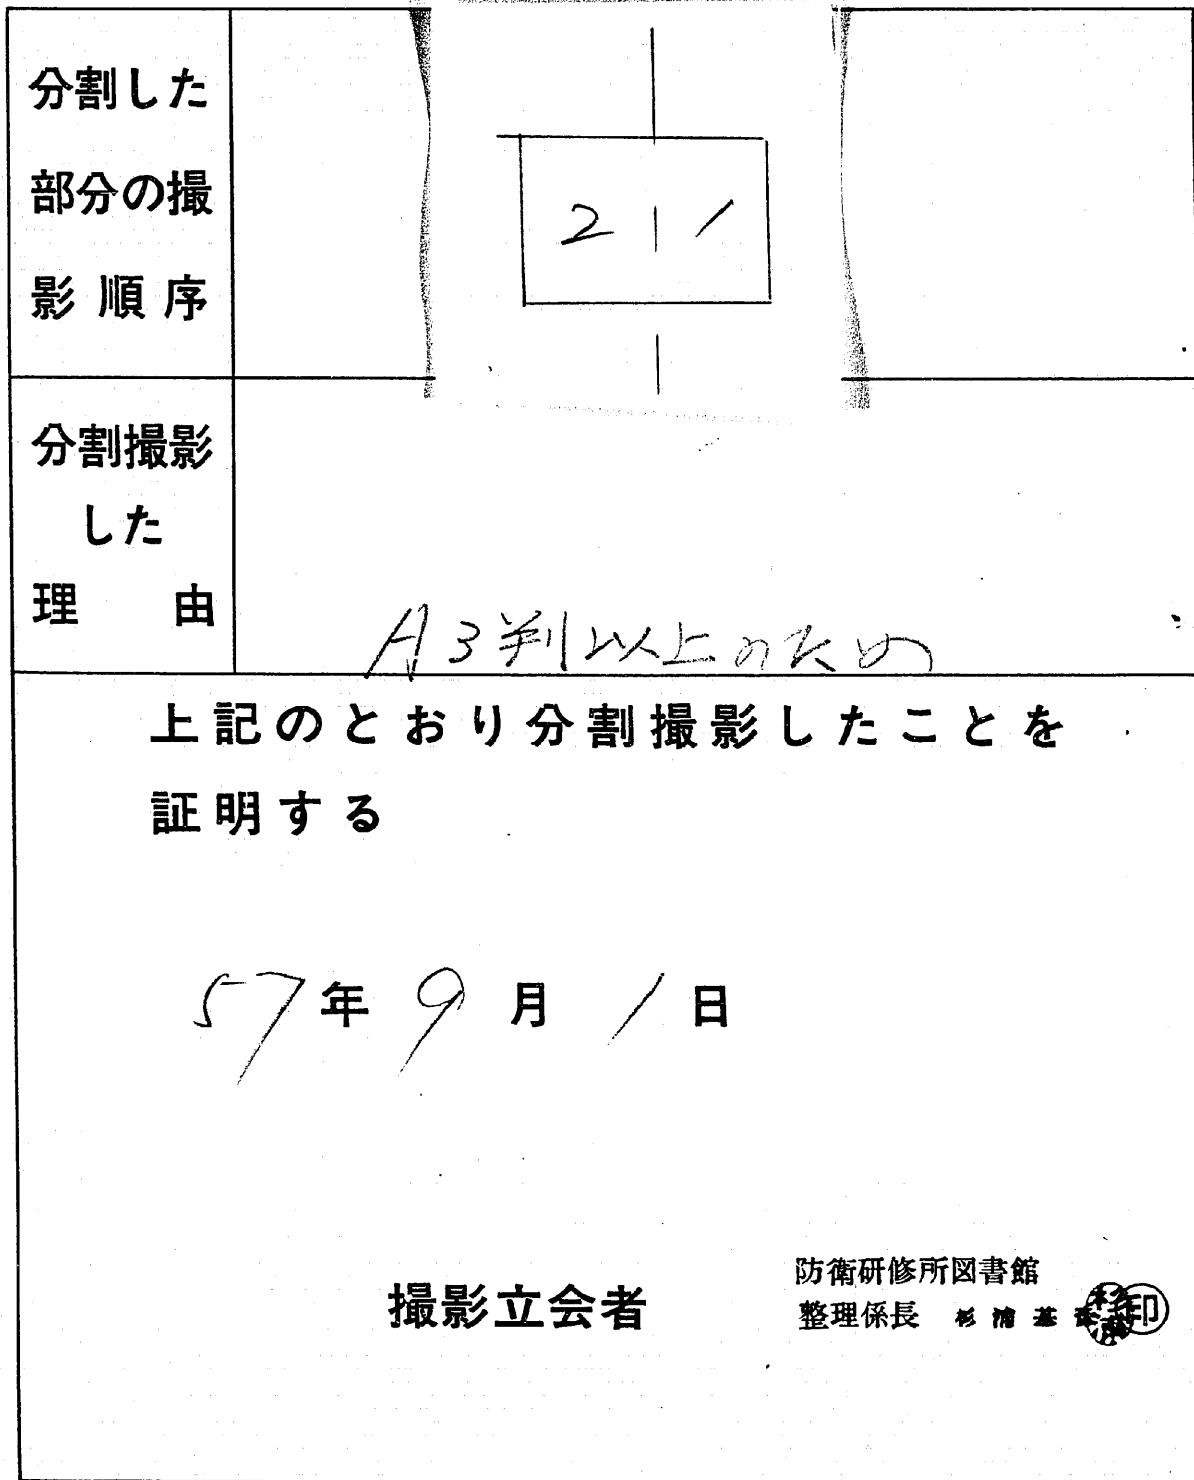 分割した
部分の撮
影順序
2 1
分割撮影
した
理由
A3判以上のため
上記のとおり分割撮影したことを
証明する
57年9月1日
撮影立会者
防衛研修所図書館
整理係長 杉浦基
杉浦
印